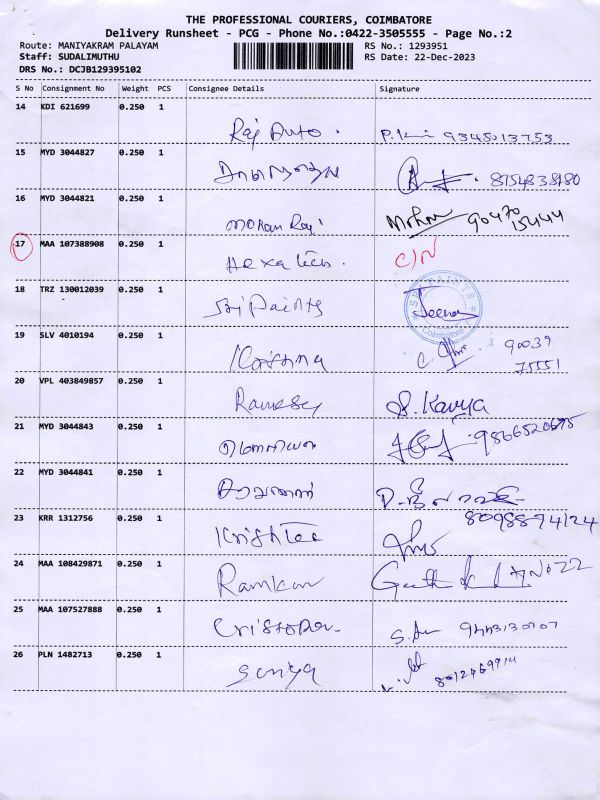 THE PROFESSIONAL COURIERS, COIMBATORE
Delivery Runsheet - PCG - Phone No.:0422-3505555 - Page No.:2
Route: MANIYAKRAM PALAYAM RS No.: 1293951
Staff: SUDALIMUTHU RS Date: 22-Dec-2023
DRS No.: DCJB129395102
S No Consignment No Weight PCS Consignee Details Signature
14 KDI 621699 0.250 1
Raj Auto. 9345013753
15 MYD 3044827 0.250 1
16 MYD 3044821 0.250 1
Mohan Raj Mohan 90470
15444
17 MAA 107388908 0.250 1
Hexa tech. C/N
18 TRZ 130012039 0.250 1
Sri Paints Jeena
SRI PAINTS Coimbatore
19 SLV 4010194 0.250 1
Krishna 90039
75551
20 VPL 403849857 0.250 1
Ramesh S. Kavya
21 MYD 3044843 0.250 1
22 MYD 3044841 0.250 1
23 KRR 1312756 0.250 1
8098874124
24 MAA 108429871 0.250 1
Ramkumar
25 MAA 107527888 0.250 1
Cristoper
26 PLN 1482713 0.250 1
Soniya